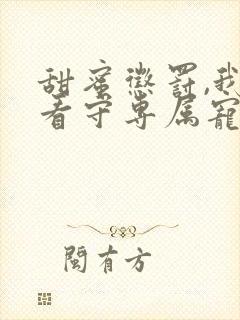 甜蜜懲罰,我
看守專屬寵
閩有方